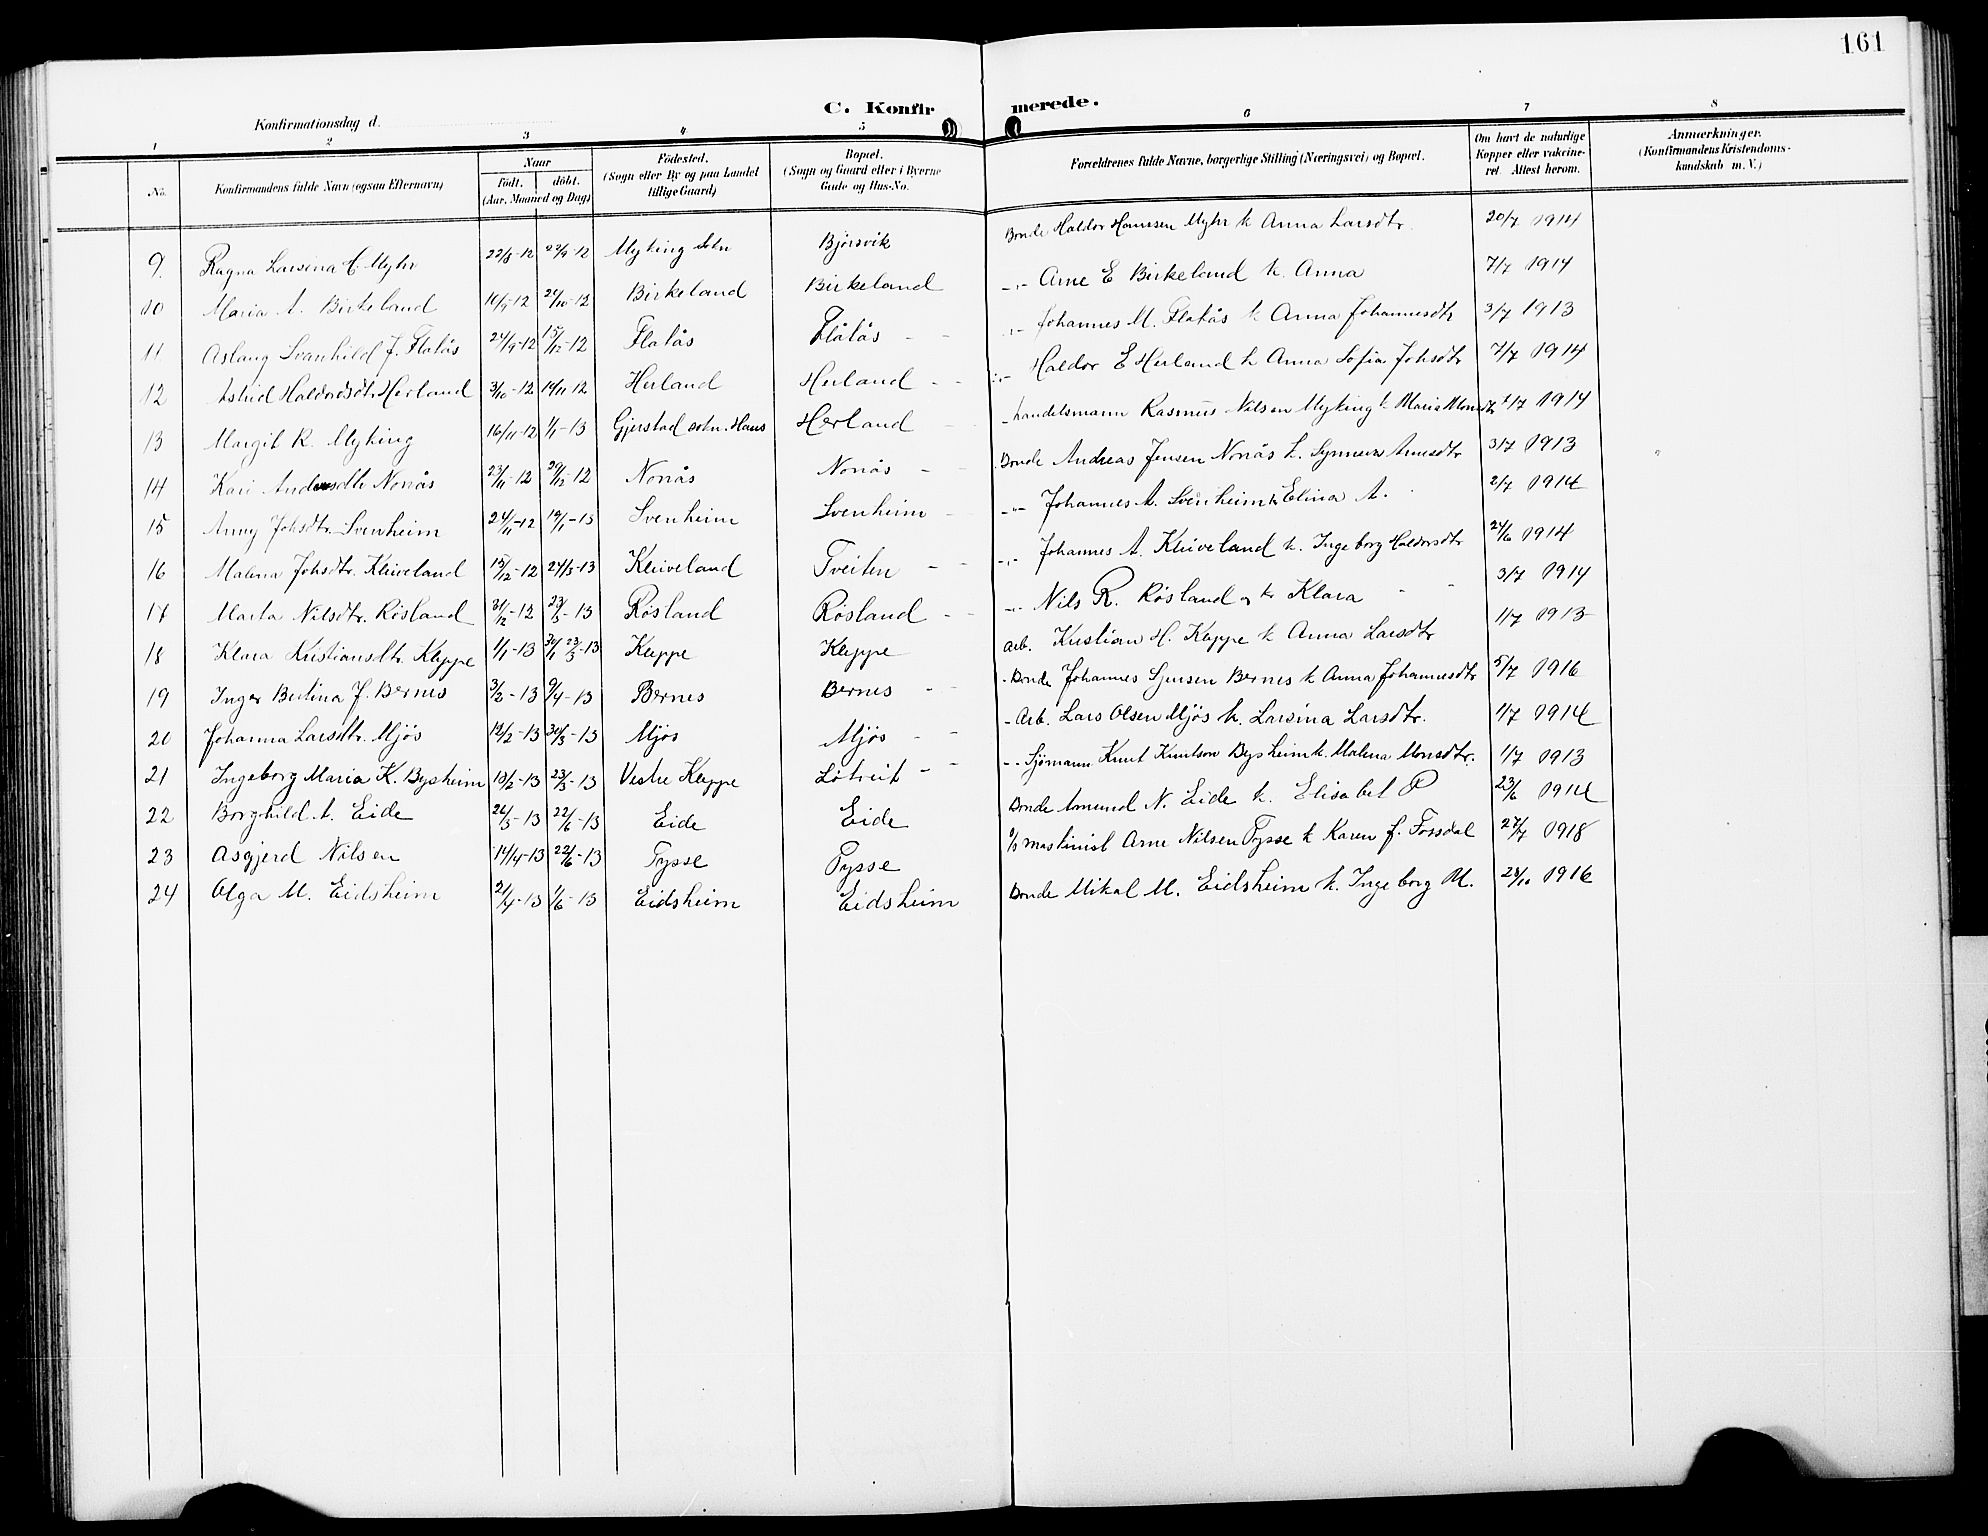 161
C. Konfirmerede.
Konfirmationsdag d.
1 2 3 4 5 6 7 8
No. Konfirmandens fulde Navn (ogsaa Efternavn) Naar født. døbt. (Aar, Maaned og Dag) Fødested. (Sogn eller By og paa Landet tillige Gaard) Bopæl. (Sogn og Gaard eller i Byerne Gade og Hus-No. Forældrenes fulde Navne, borgerlige Stilling (Næringsvei) og Bopæl. Om havt de naturlige Kopper eller vakcineret. Attest herom. Anmærkninger. (Konfirmandens Kristendomskundskab m. V.)
9 Ragna Larsina H. Myhr 22/8-12 22/9-12 Myking Bjørsvik Bonde Haldor Hanssen Myhr k Anna Larsdtr. 20/7 1914
10 Maria A. Birkeland 10/9-12 20/10-12 Birkeland Birkeland -"- Arne E Birkeland k. Anna 7/7 1914
11 Aslaug Svanhild J. Flatås 24/9-12 15/12-12 Flatås Flåtås -"- Johannes M. Flatås k Anna Johannesdtr 3/7 1913
12 Astrid Haldorsdtr. Herland 3/10-12 14/11 12 Herland Herland -"- Haldor E Herland k Anna Sofia Johsdtr 7/7 1914
13 Margit R. Myking 16/11-12 1/1-13 Gjerstad Haus Herland - handelsmann Rasmus Nilsen Myking k Maria Monsdtr 2/7 1914
14 Kari Andersdtr Nonås 23/11-12 29/12-12 Nonås Nonås Bonde Andreas Jensen Nonås k. Synneva Arnesdtr 3/7 1913
15 Anny Johsdtr. Svenheim 24/11-12 19/1-13 Svenheim Svenheim -"- Johannes A. Svenheim k Elina A. 2/7 1914
16 Malena Johsdtr. Kleiveland 15/12-12 24/3-13 Kleiveland Tveiten -"- Johannes A. Kleiveland k. Ingeborg Haldorsdtr 24/6 1914
17 Marta Nilsdtr. Røsland 31/12-12 23/3-13 Røsland Røsland -"- Nils R. Røsland k Klara 3/7 1914
18 Klara Kristiansdtr. Kleppe 1/1-13 30/1 23/3-13 Kleppe Kleppe arb. Kristian H. Kleppe k Anna Larsdtr 1/7 1913
19 Inger Bertina J. Bernes 3/2-13 9/4-13 Bernes Bernes - Bonde Johannes Sjursen Bernes k Anna Johannesdtr 5/7 1916
20 Johanna Larsdtr. Mjøs 12/2-13 30/3-13 Mjøs Mjøs - Arb. Lars Olsen Mjøs k. Larsina Larsdtr. 1/7 1914
21 Ingeborg Maria K. Bysheim 13/2-13 23/3-13 Vestre Kleppe Løtveit -- Sjømann Knut Knutson Bysheim k. Malena Monsdtr. 1/7 1913
22 Borghild A. Eide 26/3-13 22/6-13 Eide Eide Bonde Amund N. Eide k. Elisabet P 23/6 1914
23 Asgjerd Nilsen 14/4-13 22/6-13 Tysse Tysse Maskinist Arne Nilsen Tysse k Karen J. Fossdal 27/7 1918
24 Olga M. Eidsheim 21/4-13 1/6-13 Eidsheim Eidsheim Bonde Mikal M. Eidsheim k. Ingeborg M. 24/10 1916